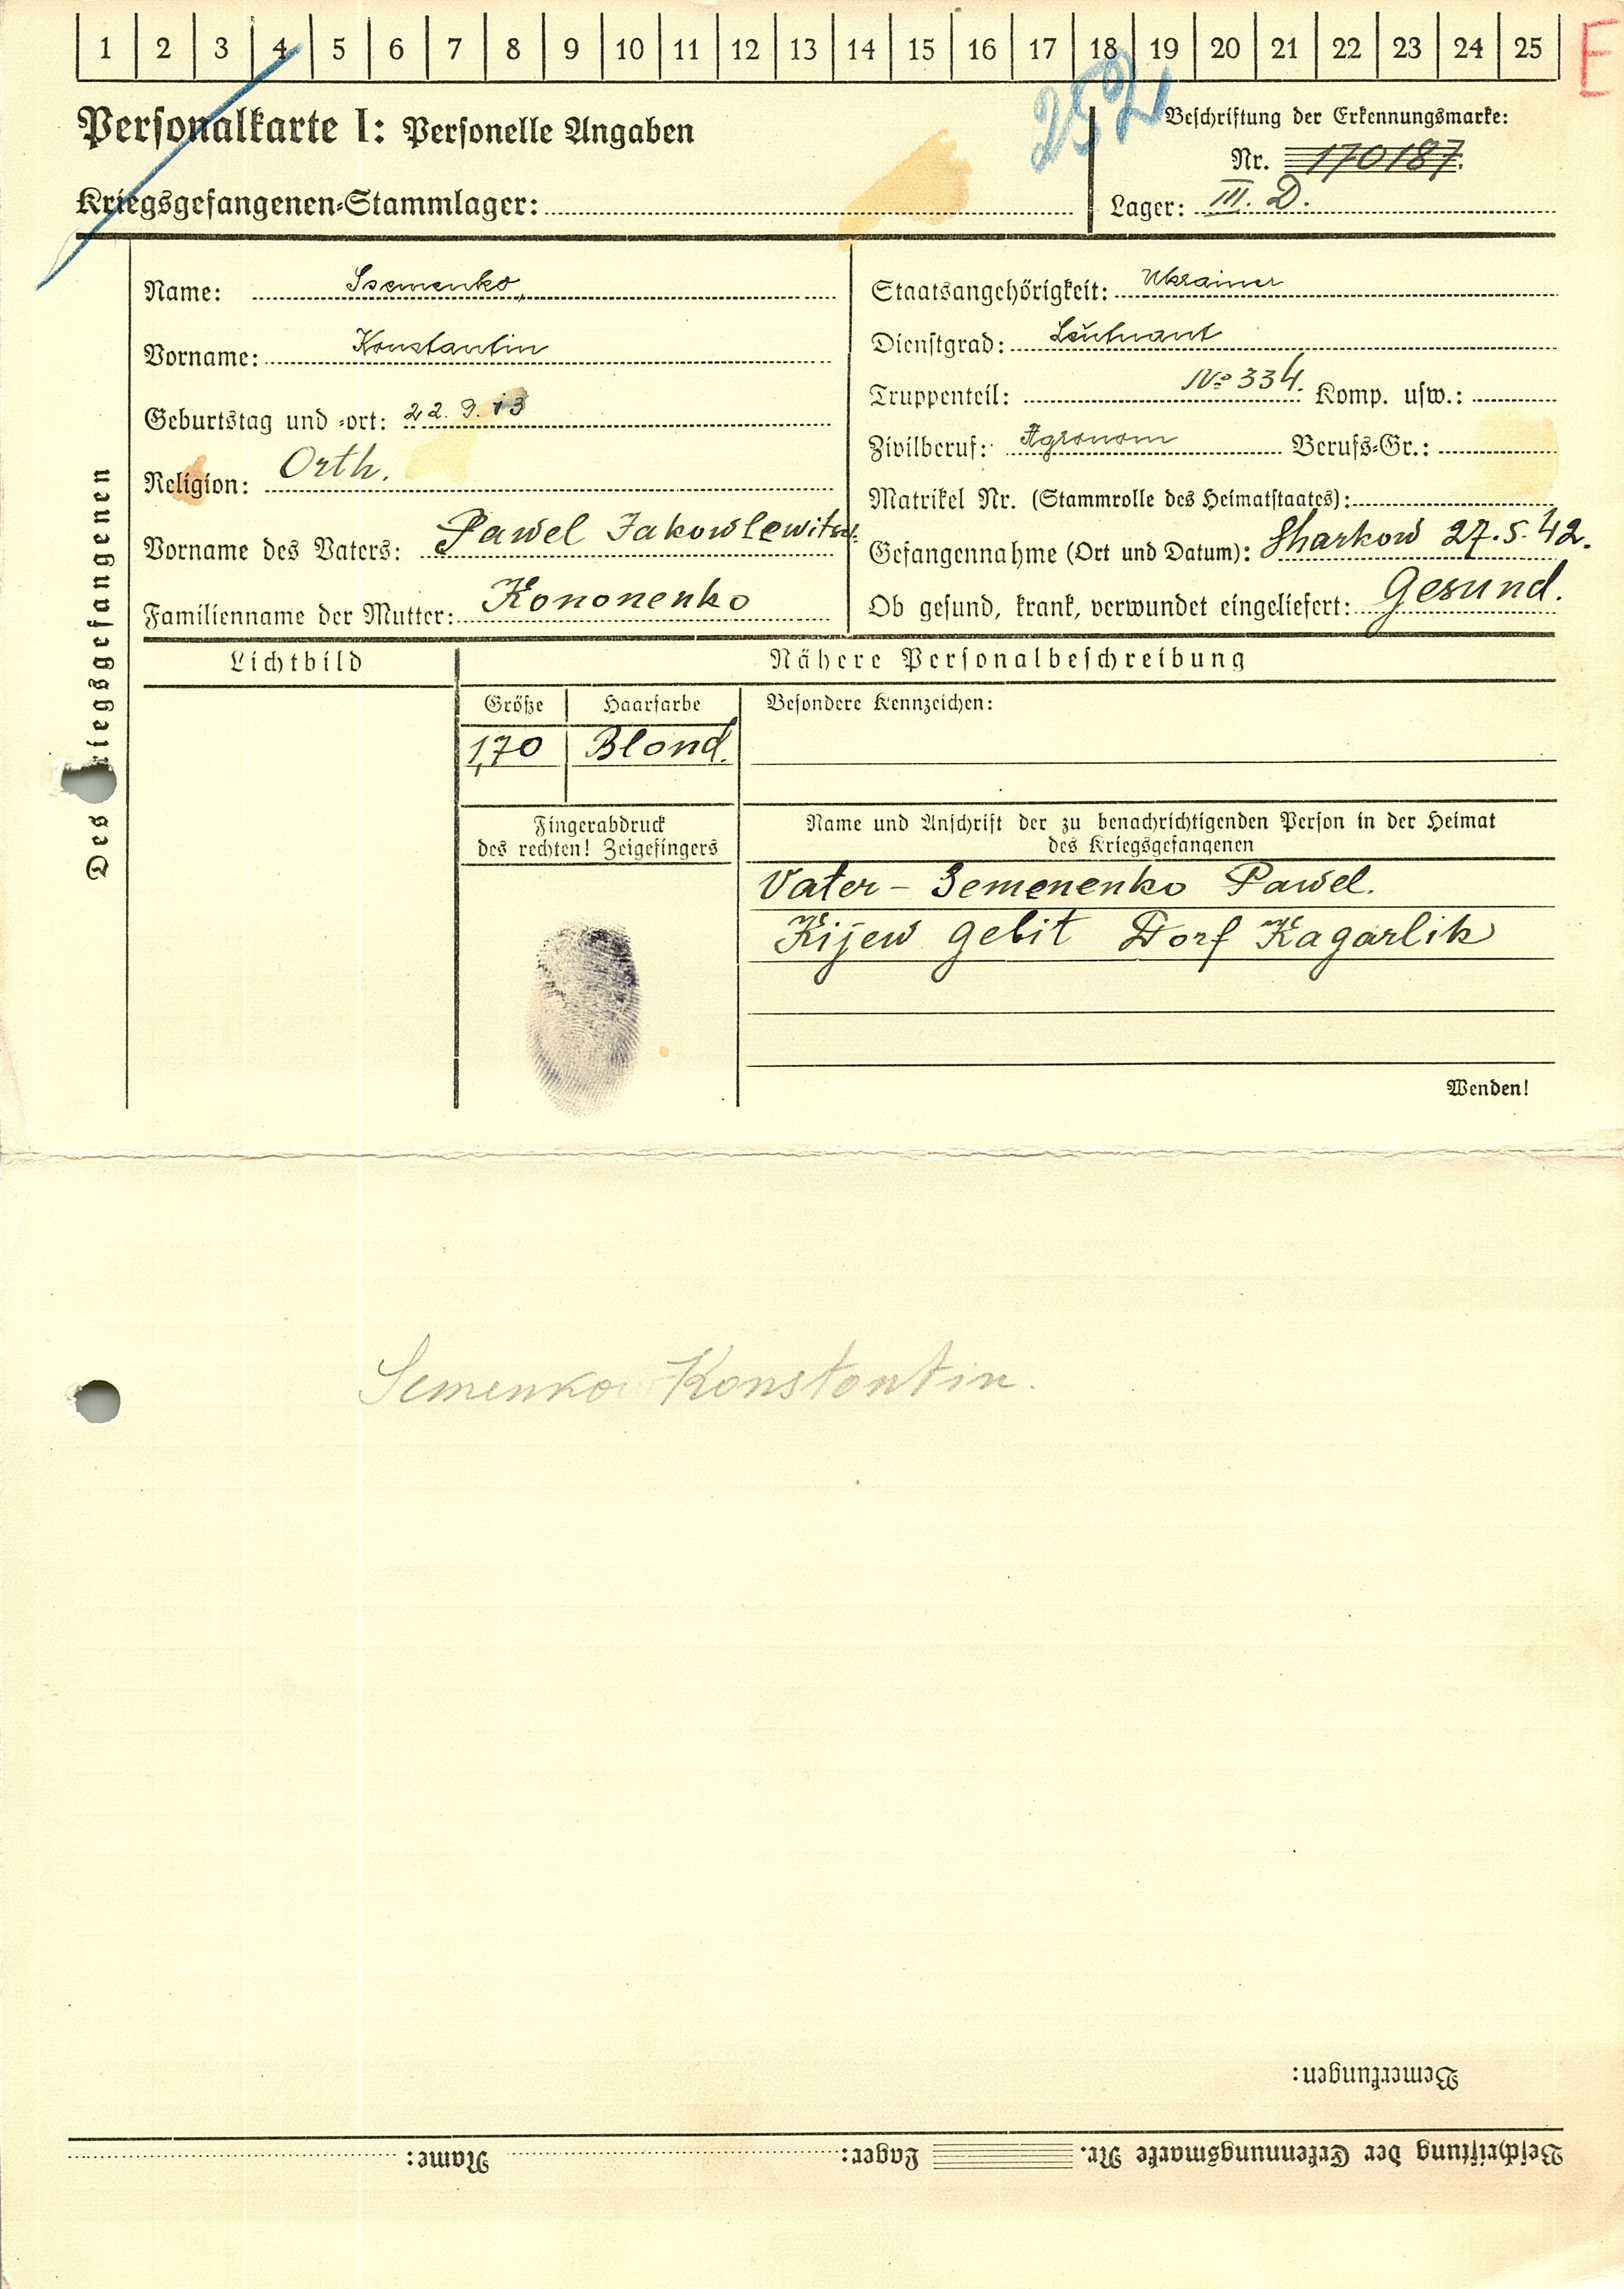 1 2 3 4 5 6 7 8 9 10 11 12 13 14 15 16 17 18 19 20 21 22 23 24 25 E
252
Personalkarte I: Personelle Angaben
Beschriftung der Erkennungsmarke:
Nr. 170187.
Kriegsgefangenen-Stammlager:
Lager: III. D.
Des Kriegsgefangenen
Name: Ssemenko,
Vorname: Konstantin
Geburtstag und -ort: 22. 9. 13
Religion: Orth.
Vorname des Vaters: Pawel Jakowlewitsch.
Familienname der Mutter: Kononenko
Staatsangehörigkeit: Ukrainer
Dienstgrad: Leutnant
Truppenteil: № 334. Komp. usw.:
Zivilberuf: Agronom Berufs-Gr.:
Matrikel Nr. (Stammrolle des Heimatstaates):
Gefangennahme (Ort und Datum): Sharkow 27.5.42.
Ob gesund, krank, verwundet eingeliefert: Gesund.
Lichtbild
Nähere Personalbeschreibung
Größe Haarfarbe
1,70 Blond.
Besondere Kennzeichen:
Fingerabdruck
des rechten! Zeigefingers
Name und Anschrift der zu benachrichtigenden Person in der Heimat
des Kriegsgefangenen
Vater - Semenenko Pawel.
Kijew gebit Dorf Kagarlik
Wenden!
Semenko Konstantin.
Bemerkungen:
Beschriftung der Erkennungsmarke Nr. Lager: Name: